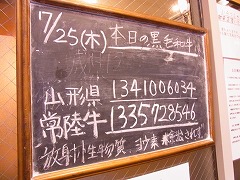 7/25(木) 本日の黒毛和牛
山形県 1341006034
常陸牛 1335728546
放射性物質 ヨウ素